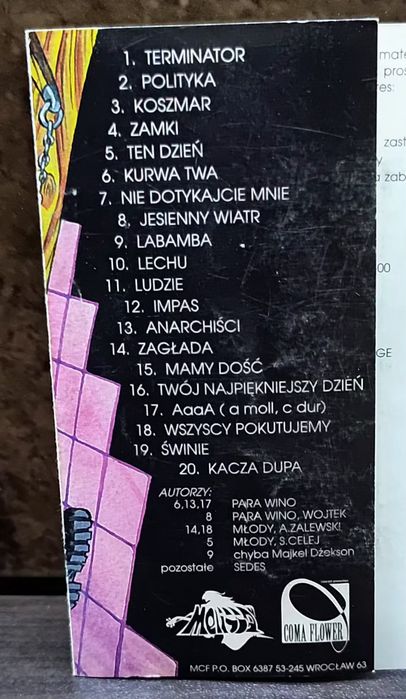 1. TERMINATOR
2. POLITYKA
3. KOSZMAR
4. ZAMKI
5. TEN DZIEŃ
6. KURWA TWA
7. NIE DOTYKAJCIE MNIE
8. JESIENNY WIATR
9. LABAMBA
10. LECHU
11. LUDZIE
12. IMPAS
13. ANARCHIŚCI
14. ZAGŁADA
15. MAMY DOŚĆ
16. TWÓJ NAJPIĘKNIEJSZY DZIEŃ
17. AaaA ( a moll, c dur )
18. WSZYSCY POKUTUJEMY
19. ŚWINIE
20. KACZA DUPA
AUTORZY:
6,13,17 PARA WINO
8 PARA WINO, WOJTEK
14,18 MŁODY, A.ZALEWSKI
5 MŁODY, S.CELEJ
9 chyba Majkel Dżekson
pozostałe SEDES
MELISSA
COMA FLOWER
MCF P.O. BOX 6387 53-245 WROCŁAW 63